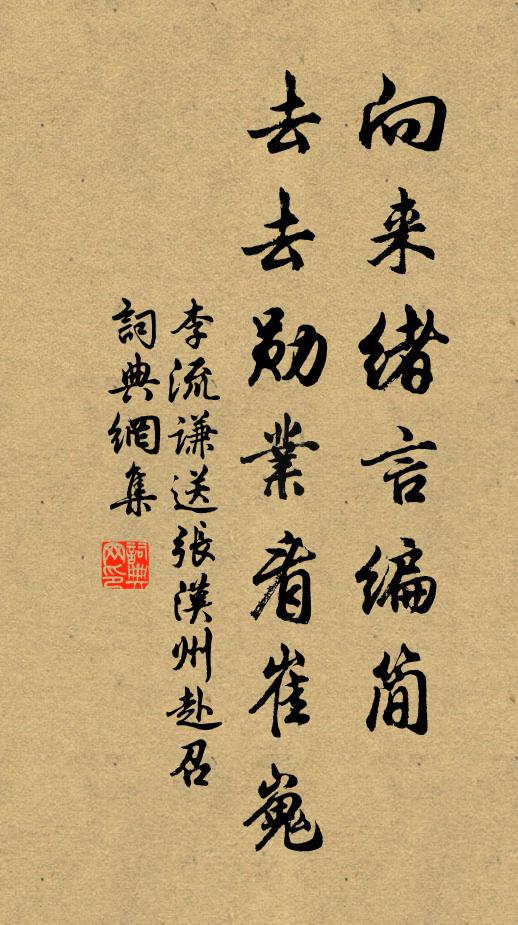 向来绪言编简
去去勋業看崔嵬
李流谦送張漢州赴召
詞典網集
詞典網印